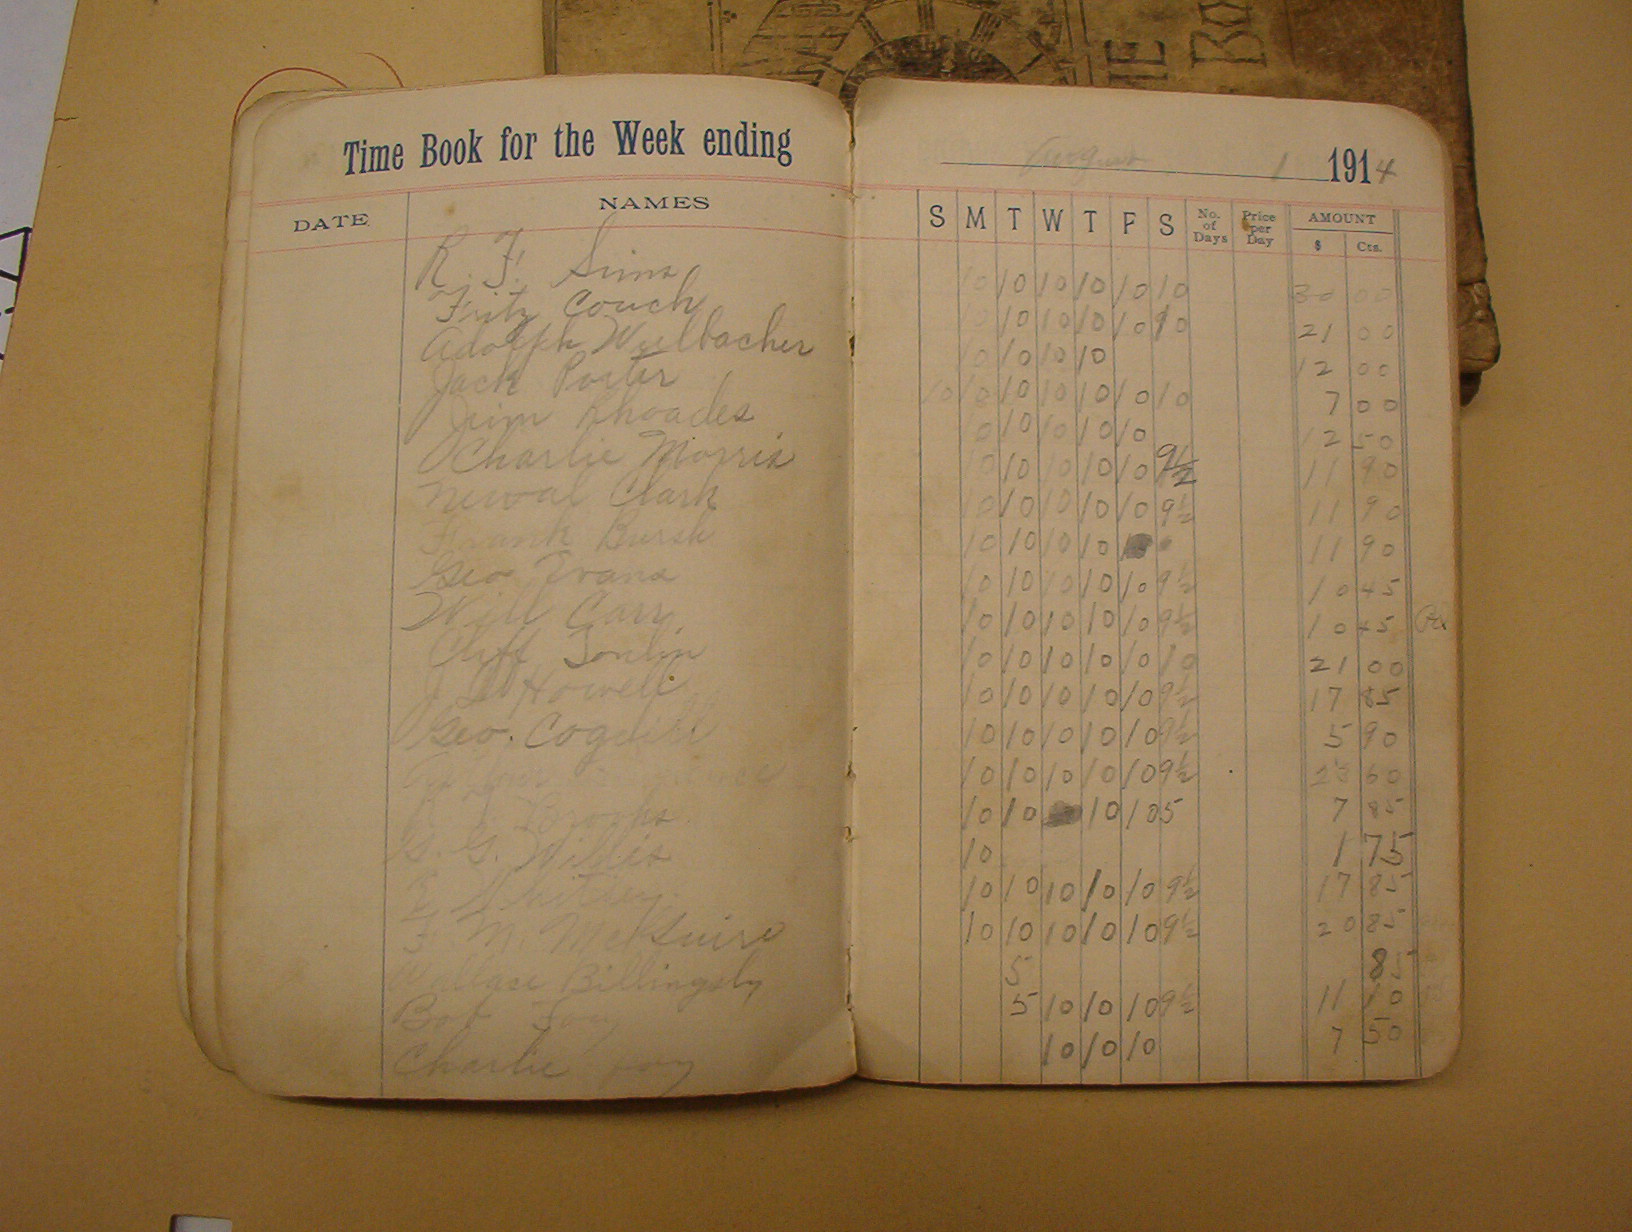 ME
BO
Time Book for the Week ending August 1 1914
DATE NAMES S M T W T F S No. of Days Price per Day AMOUNT $ Cts.
R. F. Sims 10 10 10 10 10 10 30 00
Fritz Couch 10 10 10 10 10 21 00
Adolph Wulbacher 10 10 10 10 12 00
Jack Porter 10 10 10 10 10 10 10 7 00
Jim Rhoades 10 10 10 10 10 12 50
Charlie Morris 10 10 10 10 10 9½ 11 90
Newal Clark 10 10 10 10 10 9½ 11 90
Frank Bursk 10 10 10 10 11 90
Geo Evans 10 10 10 10 10 9½ 10 45
Will Carr 10 10 10 10 10 9½ 10 45 Pd
Cliff Tomlin 10 10 10 10 10 10 21 00
J L Howell 10 10 10 10 10 9½ 17 85
Geo. Coguill 10 10 10 10 10 9½ 5 90
10 10 10 10 10 9½ 60
Brooks 10 10 10 10 5 7 85
G. G. Willis 10 1 75
Whitsey 10 10 10 10 10 9½ 17 85
F M. McGuire 10 10 10 10 10 9½ 20 85
Wallace Billingsly 5 85
Bob Foy 5 10 10 10 9½ 11 10
Charlie Foy 10 10 10 7 50